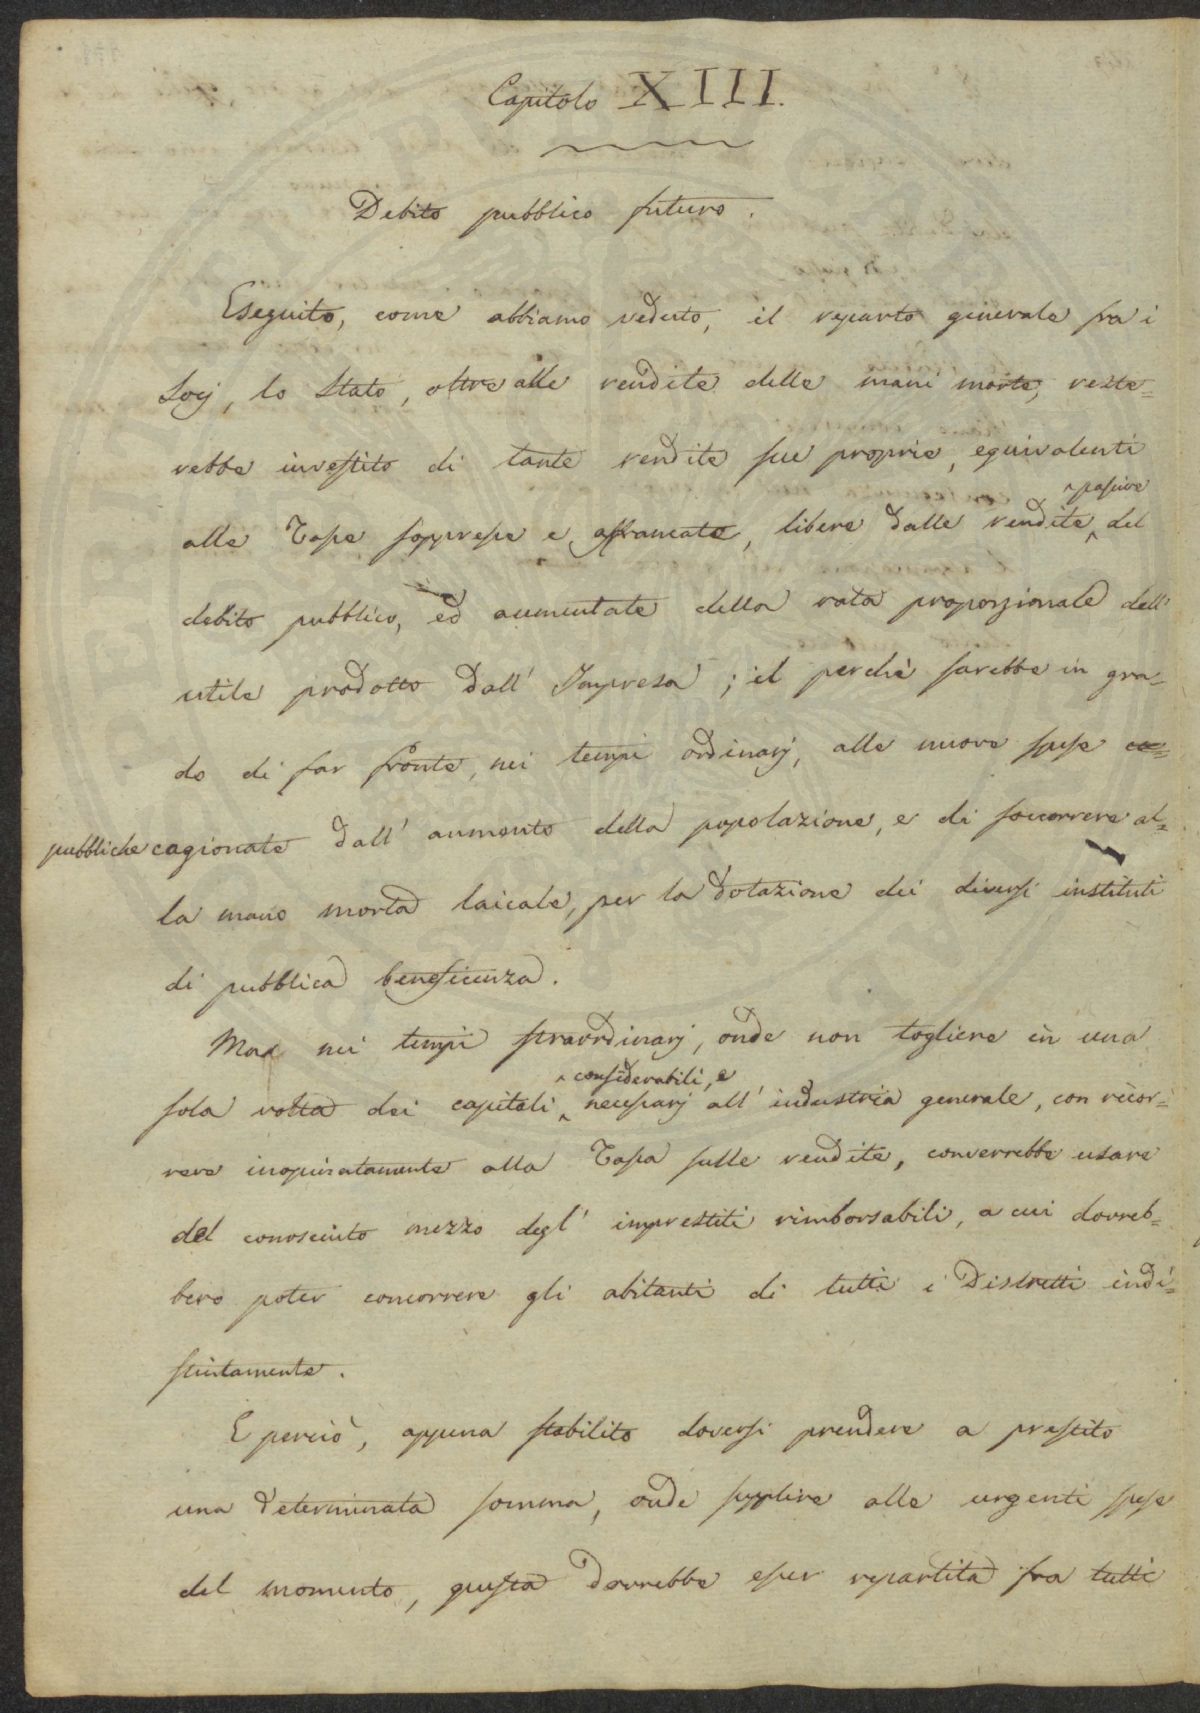 Capitolo XIII.
Debito pubblico futuro.
Eseguito, come abbiamo veduto, il reparto generale fra i
Socj, lo Stato, oltre alle rendite delle mani morte, reste=
rebbe investito di tante rendite sue proprie, equivalenti
alle Tasse soppresse e affrancate, libere dalle rendite passive del
debito pubblico, ed aumentate della rata proporzionale dell'
utile prodotto dall' Impresa; il perchè sarebbe in gra=
do di far fronte, nei tempi ordinarj, alle nuove spese
pubbliche cagionate dall' aumento della popolazione, e di soccorrere al=
la mano morta laicale, per la dotazione dei diversi instituti
di pubblica beneficenza.
Ma nei tempi straordinarj, onde non togliere in una
sola volta dei capitali considerabili, e necessarj all' industria generale, con ricor=
rere inopinatamente alla Tassa sulle rendite, converrebbe usare
del conosciuto mezzo degl' imprestiti rimborsabili, a cui dovreb=
bero poter concorrere gli abitanti di tutti i Distretti indi=
stintamente.
E perciò, appena stabilito doversi prendere a prestito
una determinata somma, onde supplire alle urgenti spese
del momento, questa dovrebbe esser repartita fra tutti